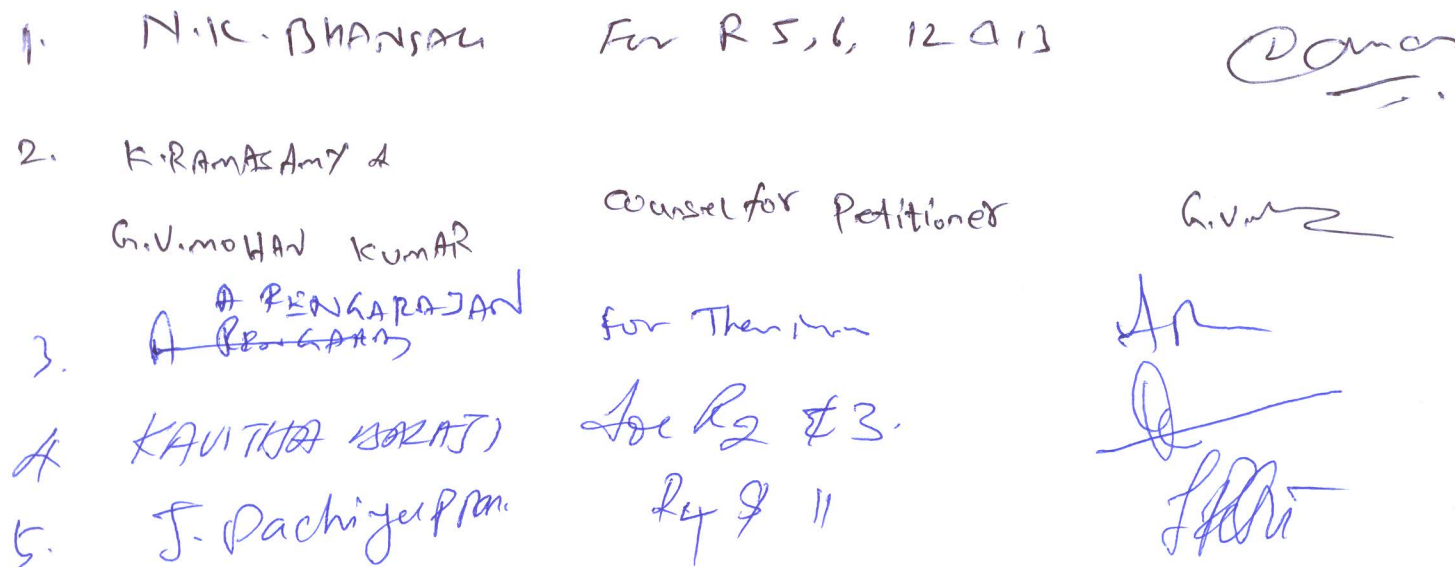 1. N.K. BHANSALI For R 5,6, 12 & 13
2. K.RAMASAMY &
G.V.MOHAN KUMAR Counsel for Petitioner G.V.
A RENGARAJAN
3. for
4 KAVITHA for R2 & 3.
5. J. Pachiyappan. R4 & 11